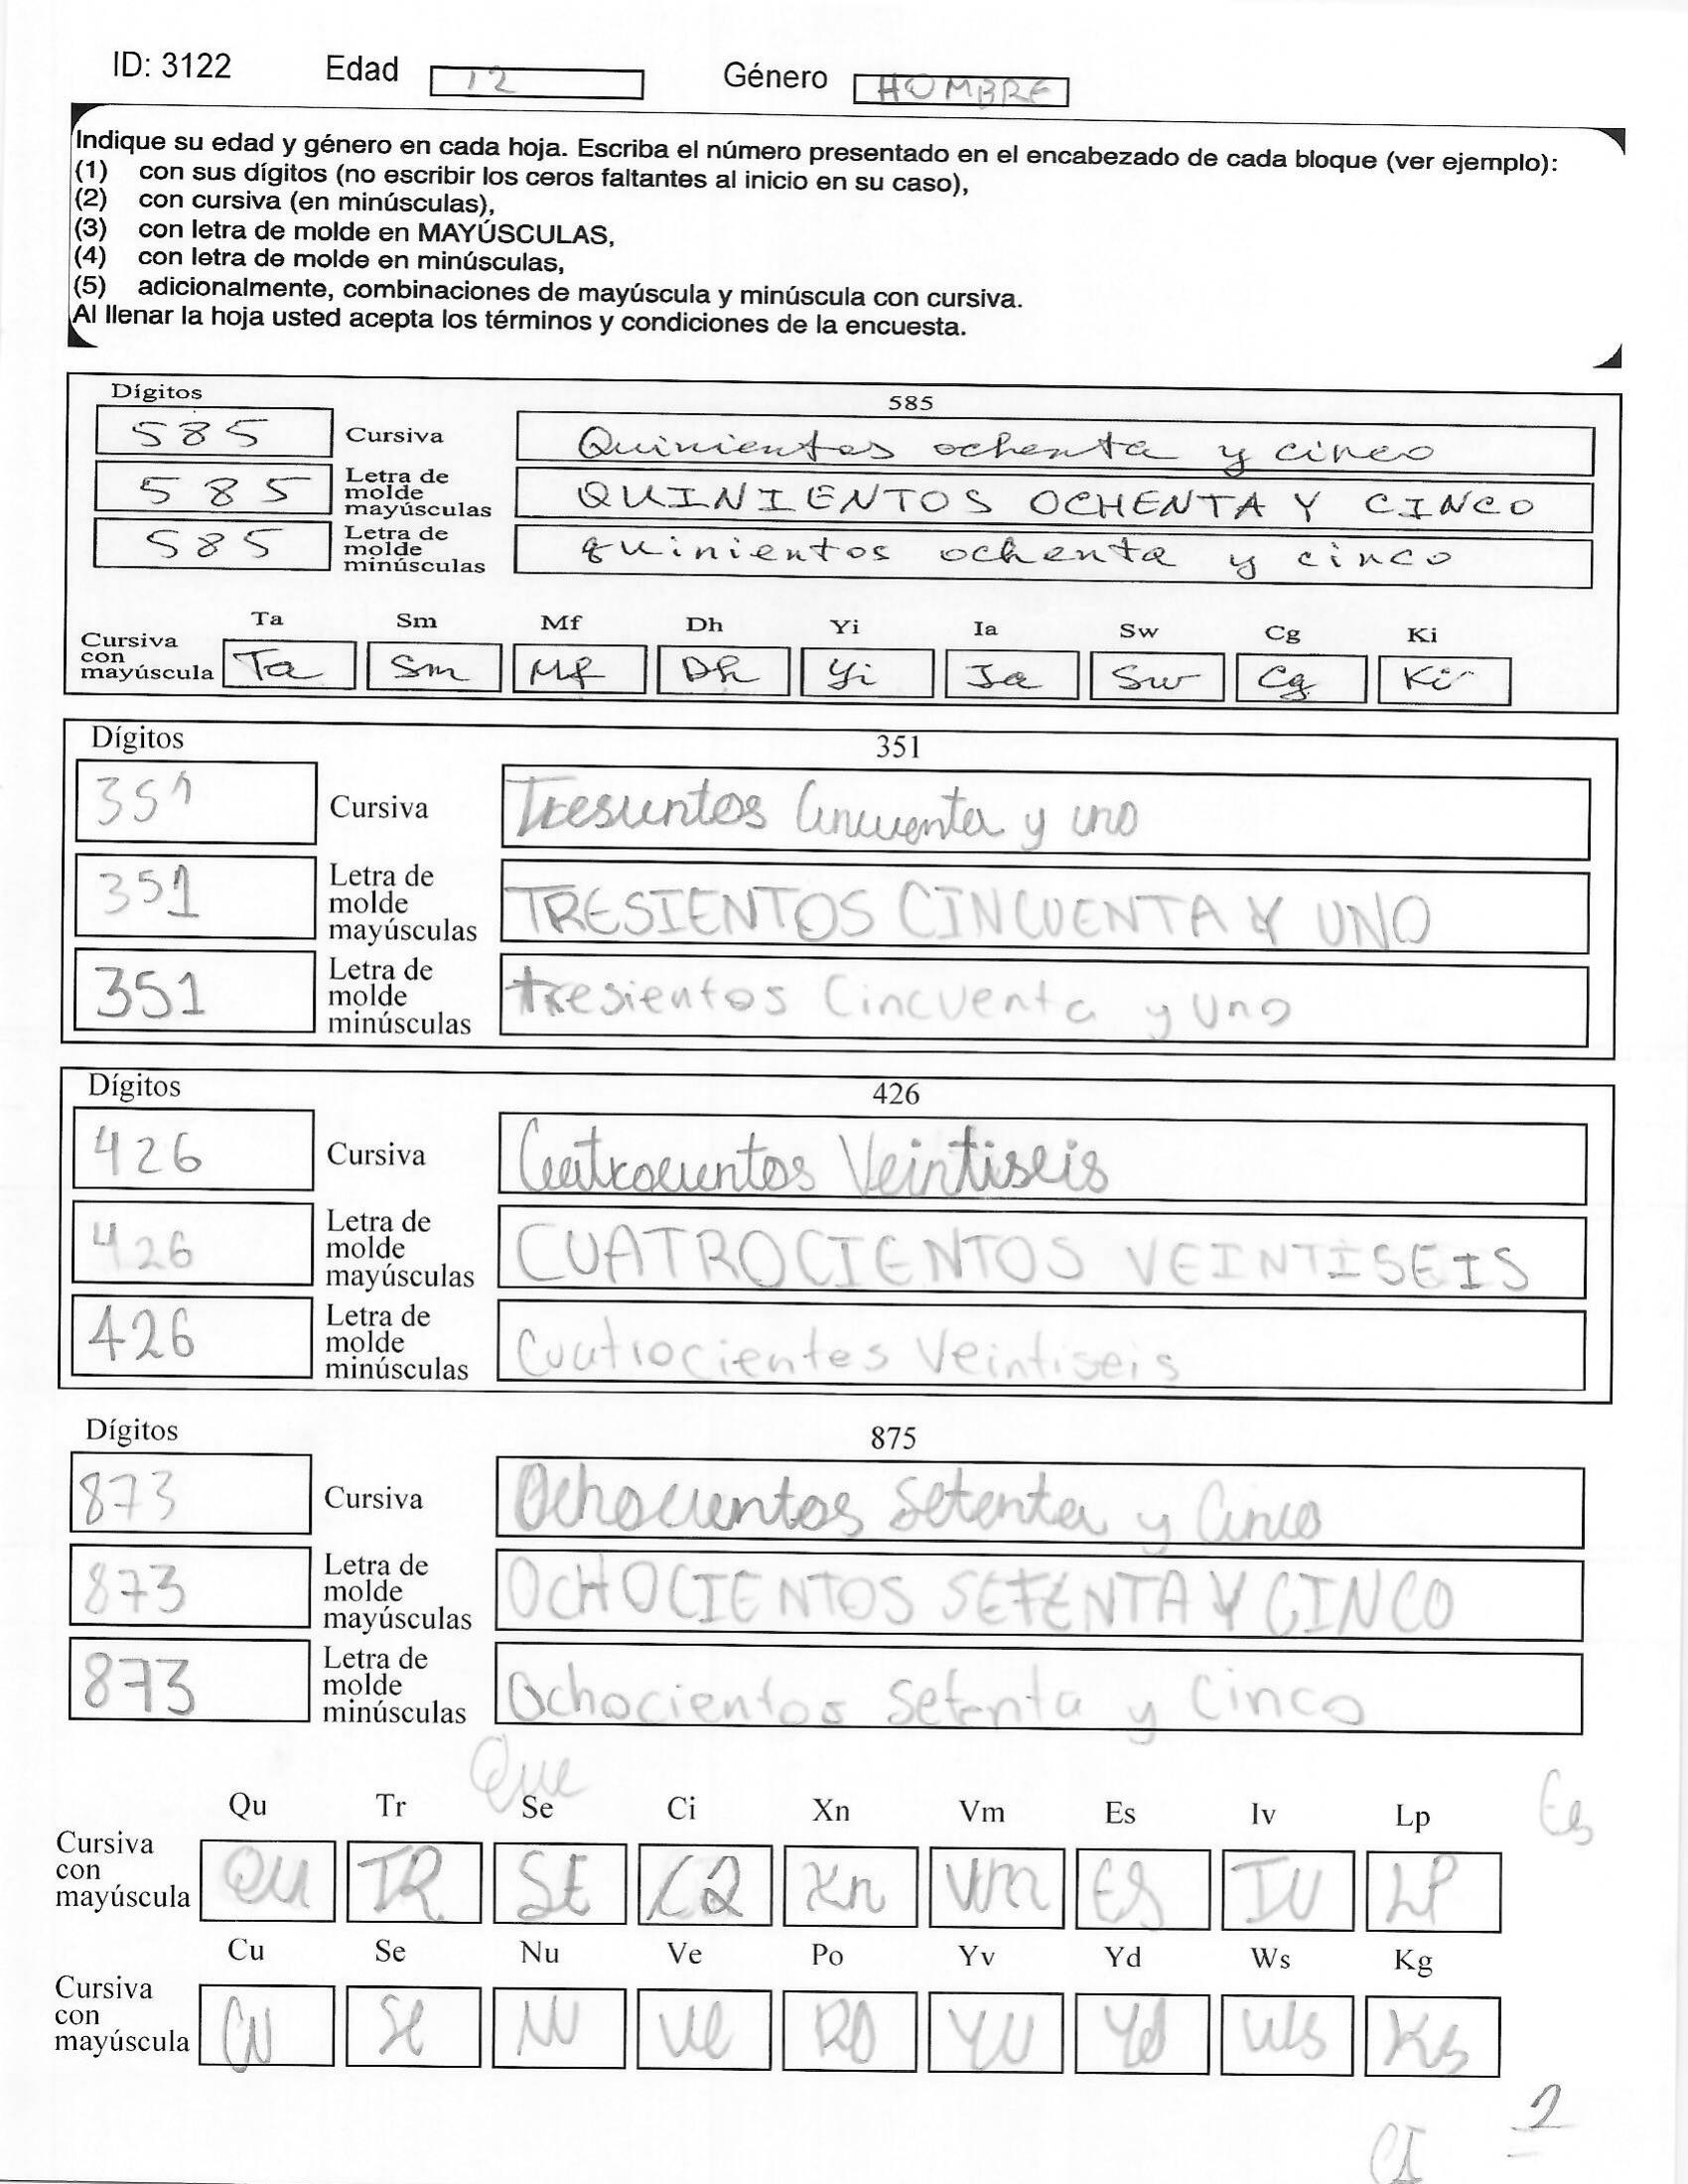 ID: 3122 Edad 12 Género HOMBRE
Indique su edad y género en cada hoja. Escriba el número presentado en el encabezado de cada bloque (ver ejemplo):
(1) con sus dígitos (no escribir los ceros faltantes al inicio en su caso),
(2) con cursiva (en minúsculas),
(3) con letra de molde en MAYÚSCULAS,
(4) con letra de molde en minúsculas,
(5) adicionalmente, combinaciones de mayúscula y minúscula con cursiva.
Al llenar la hoja usted acepta los términos y condiciones de la encuesta.
Dígitos 585
585 Cursiva Quinientos ochenta y cinco
585 Letra de molde mayúsculas QUINIENTOS OCHENTA Y CINCO
585 Letra de molde minúsculas quinientos ochenta y cinco
Ta Sm Mf Dh Yi Ia Sw Cg Ki
Cursiva con mayúscula Ta Sm Mf Dh Yi Ia Sw Cg Ki
Dígitos 351
351 Cursiva Tresientos Cincuenta y uno
351 Letra de molde mayúsculas TRESIENTOS CINCUENTA Y UNO
351 Letra de molde minúsculas tresientos Cincuenta y uno
Dígitos 426
426 Cursiva Cuatrocientos Veintiseis
426 Letra de molde mayúsculas CUATROCIENTOS VEINTISEIS
426 Letra de molde minúsculas Cuatrocientes Veintiseis
Dígitos 875
873 Cursiva Ochocientos Setenta y Cinco
873 Letra de molde mayúsculas OCHOCIENTOS SETENTA Y CINCO
873 Letra de molde minúsculas Ochocientos Setenta y Cinco
Que
Es
Qu Tr Se Ci Xn Vm Es Iv Lp
Cursiva con mayúscula QU TR SE Xn Vm ES IV LP
Cu Se Nu Ve Po Yv Yd Ws Kg
Cursiva con mayúscula CU Se NU Ve PO YV Yd Ws Kg
2
CI